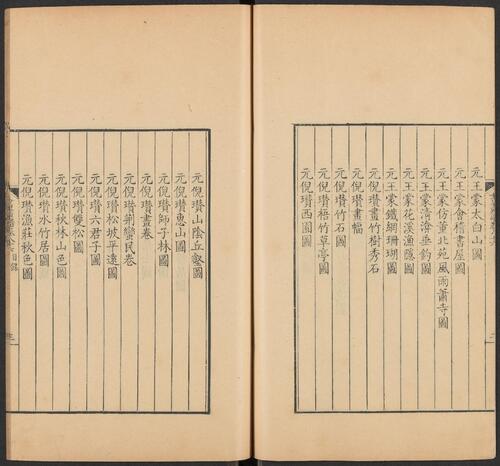 元王蒙太白山圖
元王蒙會稽書屋圖
元王蒙仿董北苑風雨蕭寺圖
元王蒙清澮垂釣圖
元王蒙花溪漁隱圖
元王蒙鐵網珊瑚圖
元倪瓚畫竹樹秀石
元倪瓚畫幅
元倪瓚竹石圖
元倪瓚梧竹草亭圖
元倪瓚西園圖
元倪瓚山陰丘壑圖
元倪瓚惠山圖
元倪瓚師子林圖
元倪瓚畫卷
元倪瓚荊蠻民卷
元倪瓚松坡平遠圖
元倪瓚六君子圖
元倪瓚雙松圖
元倪瓚秋林山色圖
元倪瓚水竹居圖
元倪瓚漁莊秋色圖
目錄